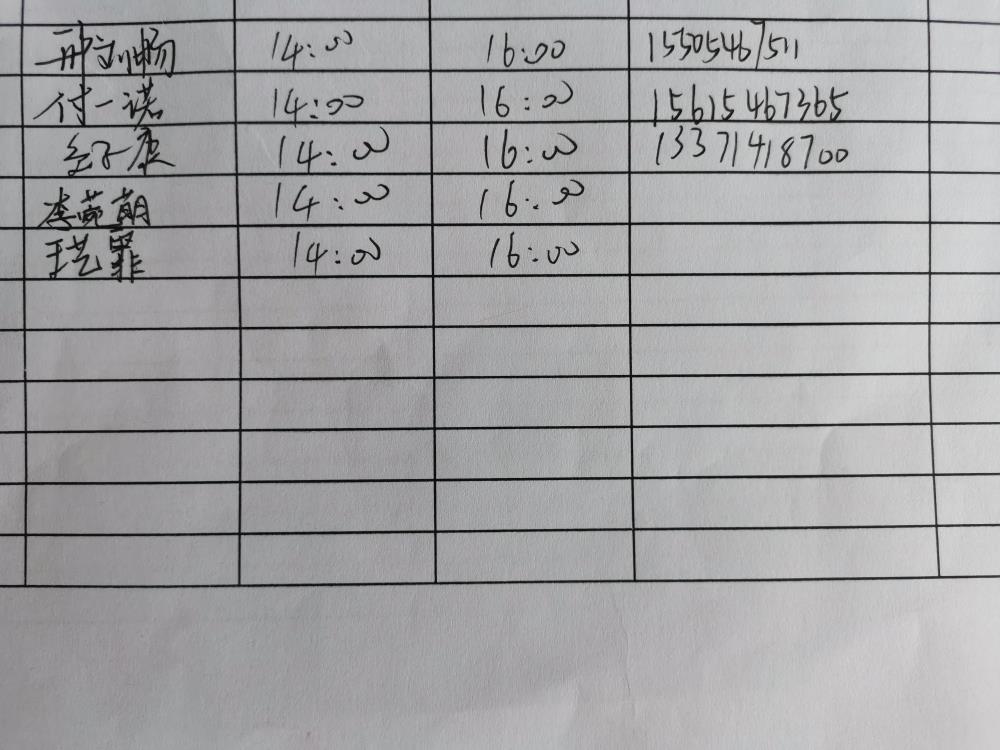 刘畅 14:00 16:00 15305467511
付一诺 14:00 16:00 15615467365
子康 14:00 16:00 13371418700
李茆朝 14:00 16:00
王艺霏 14:00 16:00